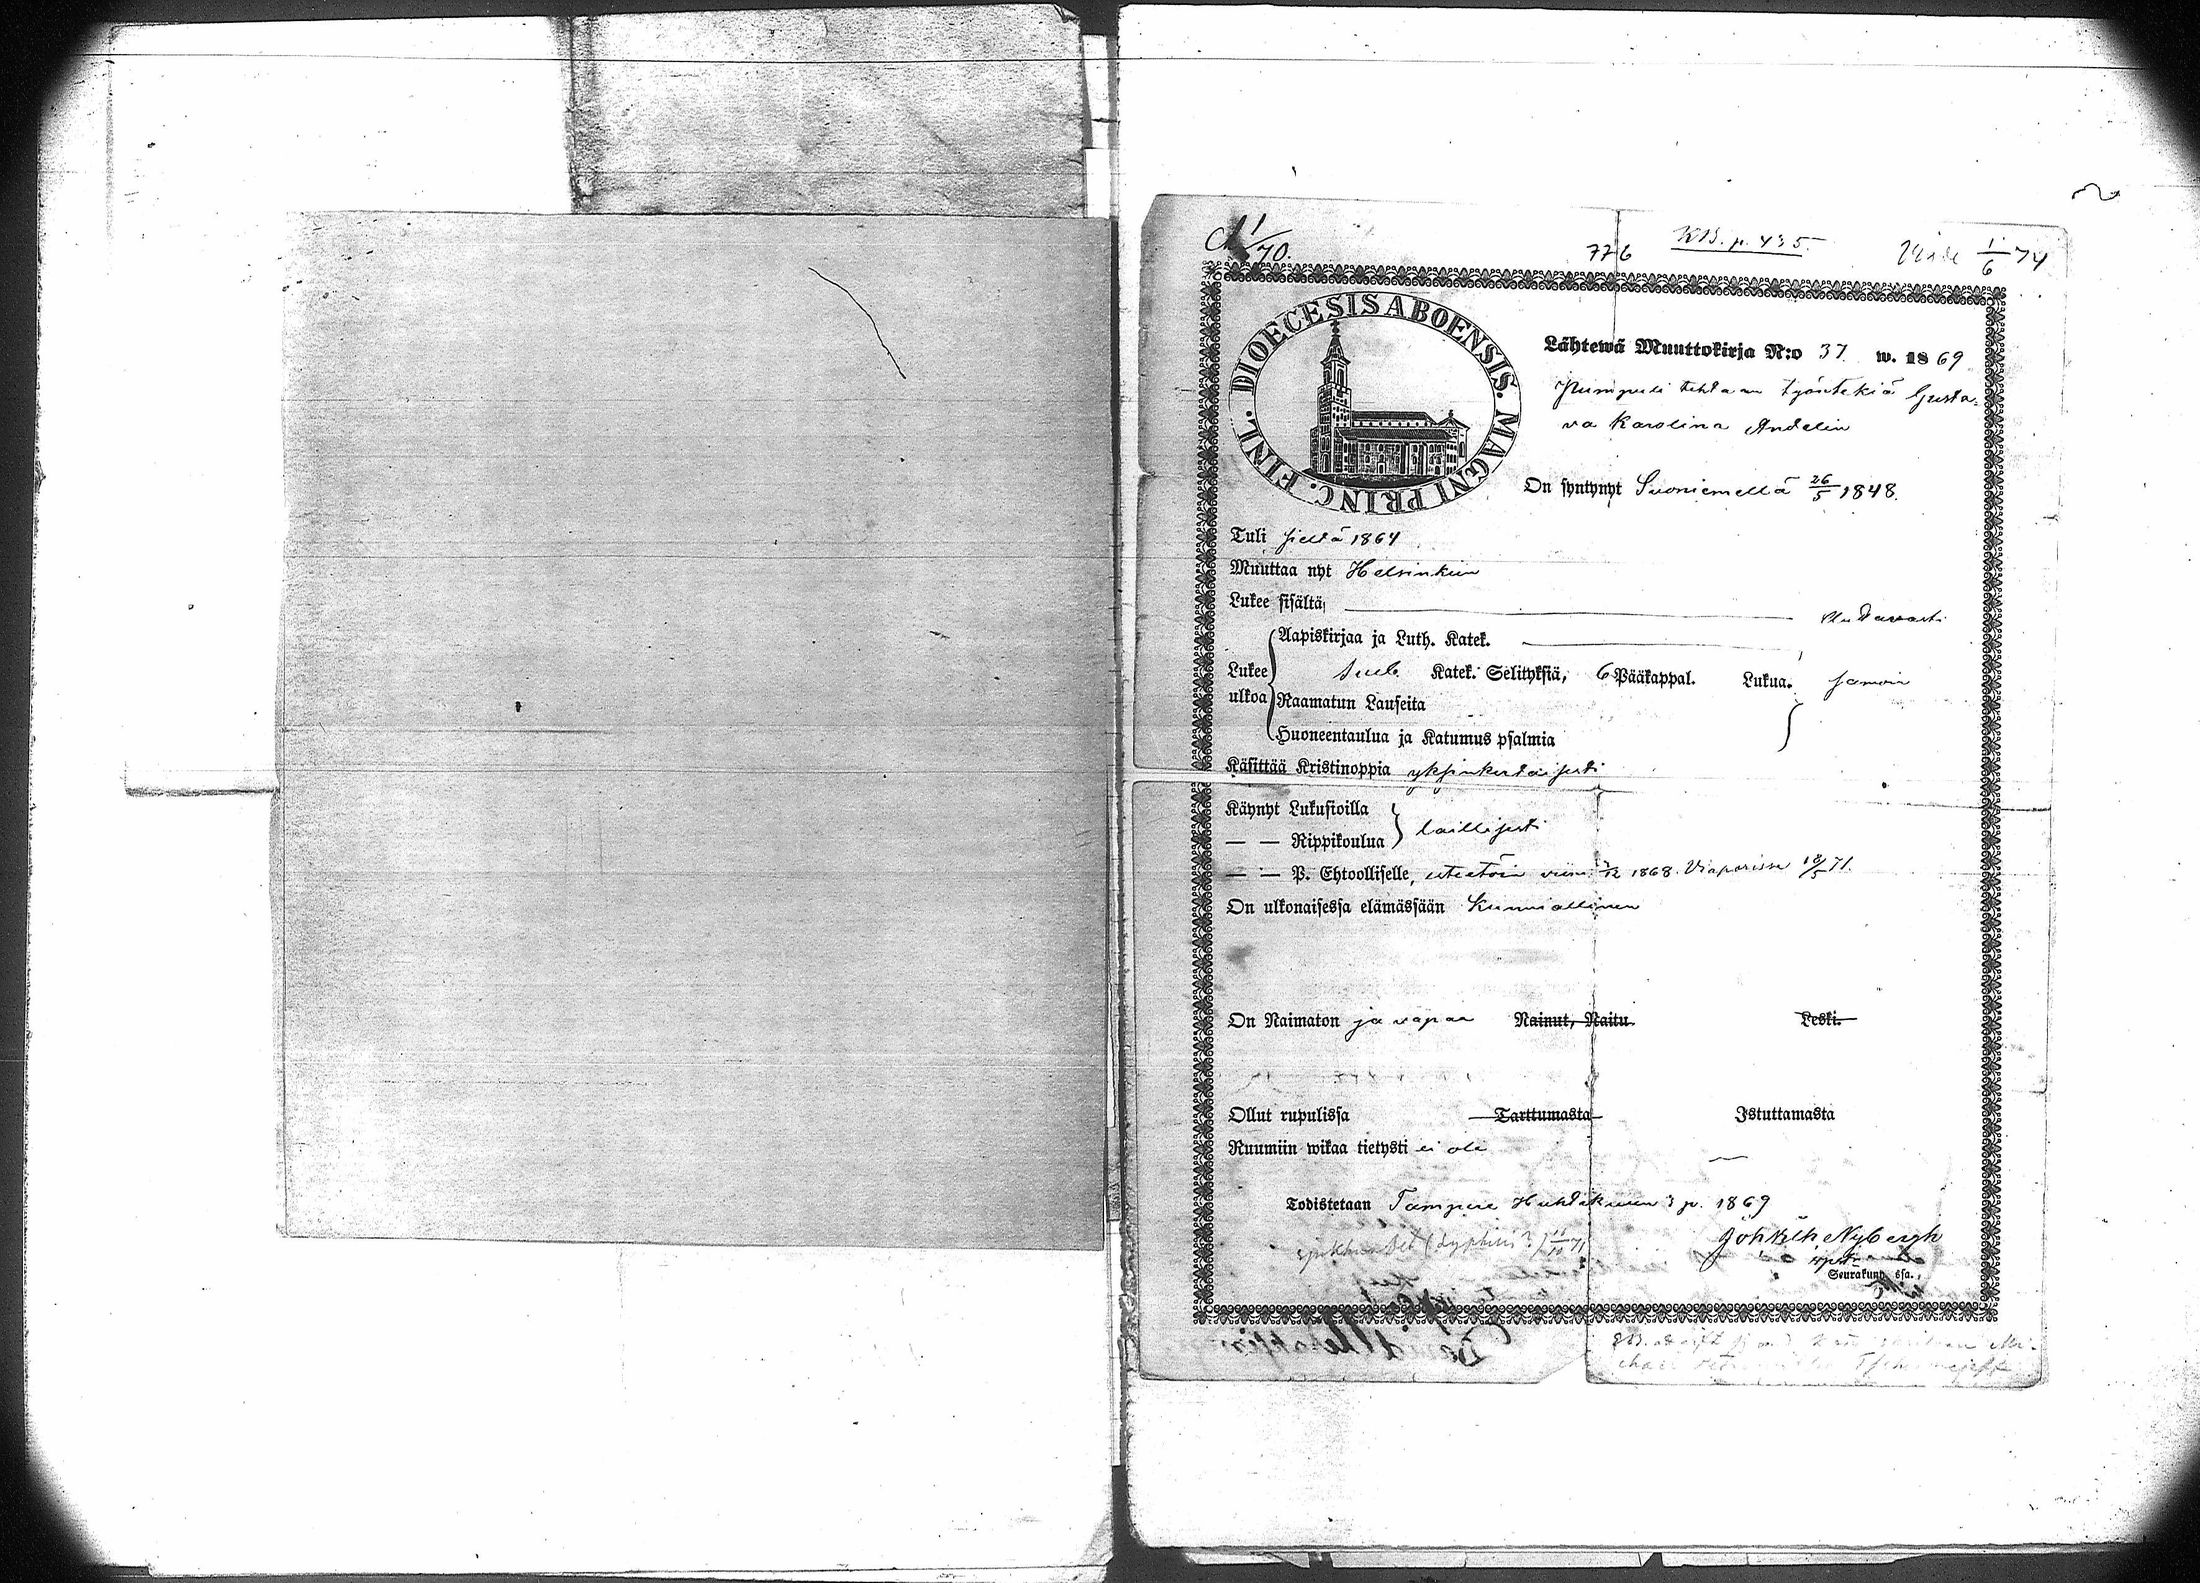 1/70.
776
KB. p. 435.
1/6 74
DIOECESIS ABOENSIS. MAGNI PRINC. FINL.
Lähtewä Muuttokirja N:o 37 w. 1869
Pumpuli tehtaan työntekiä Gusta-
va Karolina Andelin
On syntynyt Suoniemellä 26/5 1848.
Tuli sieltä 1864
Muuttaa nyt Helsinkiin
Lukee sisältä,
Aapiskirjaa ja Luth. Katek.
Lukee ulkoa
Katek. Selityksiä, 6 Pääkappal. Lukua. samoin
Raamatun Lauseita
Huoneentaulua ja Katumus psalmia
Käsittää Kristinoppia yksinkertaisesti
Käynyt Lukusioilla
— — Rippikoulua laillisesti
— — P. Ehtoolliselle, 1868. Viaporissa 18/5 71.
On ulkonaisessa elämässään Kunniallinen
On Naimaton ja vapaa Nainut, Naitu. Leski.
Ollut rupulissa Tarttumasta Istuttamasta
Ruumiin wikaa tietysti ei ole —
Todistetaan Tampere Huhtikuun 3 p. 1869
sjukhuset (typhus?) 11/10 71
Joh Nybergh
Seurakunn. ssa.,